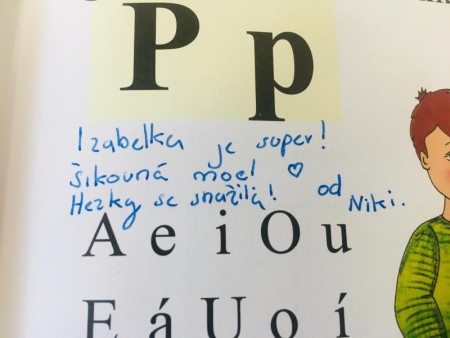 P p
Izabelka je super!
Šikovná moc! ♡
Hezky se snažila! od Niki.
A e i O u
E á U o í